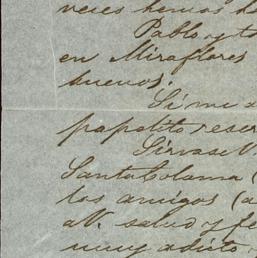 veces hemos d
Pablo y to
en Miraflores
buenos.
Si me d
papelito reser
Sirvase V
Santa Coloma (
los amigos (a
a V. salud y fe
muy adicto y